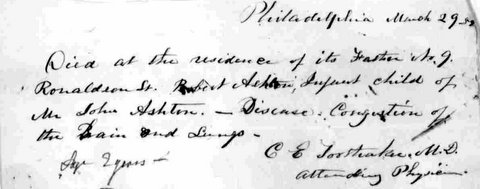 Philadelphia March 29
Died at the residence of its Father No. 9
Ronaldson St. Robert Ashton, Infant child of
Mr John Ashton. — Disease. Congestion of
the Brain and Lungs —
Age 2 years —
C E M.D.
attending Physician